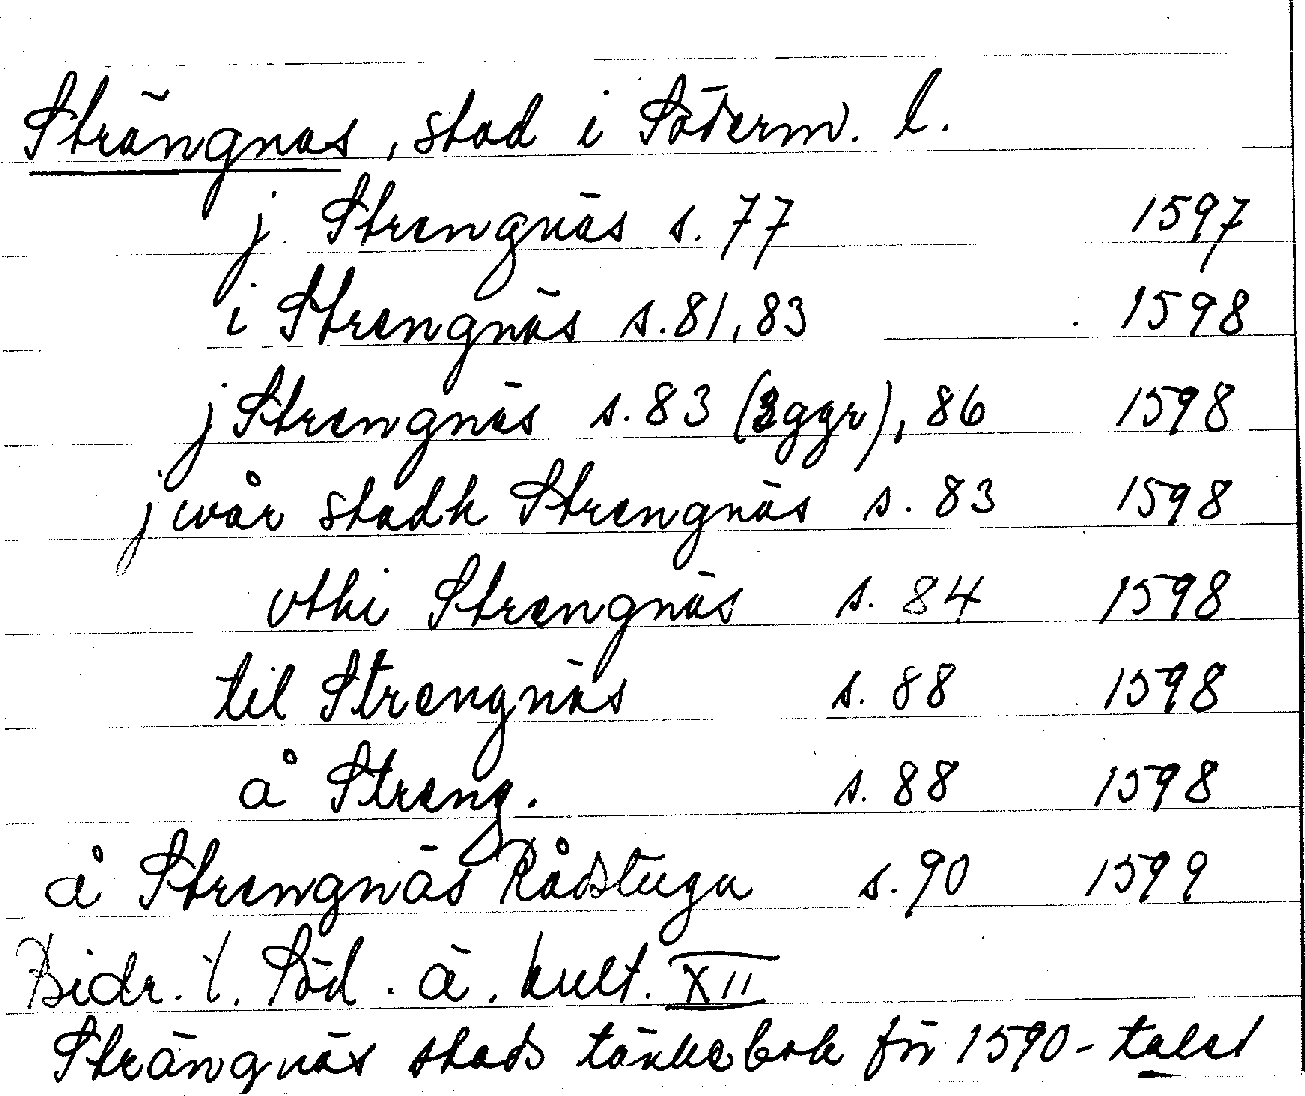 Strängnäs, stad i Söderm. l.
j Strengnäs s. 77 1597
i Strengnäs s. 81, 83 1598
j Strengnäs s. 83 (3 ggr), 86 1598
j wår stadh Strengnäs s. 83 1598
vthi Strengnäs s. 84 1598
til Strengnäs s. 88 1598
å Streng. s. 88 1598
å Strengnäs Rådstugu s. 90 1599
Bidr. t. Söd. ä. kult. XII
Strängnäs stads tänkebok för 1590-talet